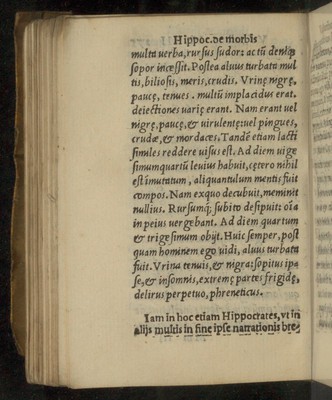 Hippoc.de morbis
multa uerba,rursus sudor: ac tũ deniq;
sopor incessit. Postea aluus turbata mul
tis, biliosis, meris, crudis. Vrinę nigrę,
paucę, tenues . multũ implacidus erat.
deiectiones uarię erant. Nam erant uel
nigrę, paucę, & uirulentę: uel pingues,
crudæ, & mordaces. Tandẽ etiam lacti
similes reddere uisus est. Ad diem uige
simumquartũ leuius habuit, cętero nihil
est ĩmutatum , aliquantulum mentis fuit
compos. Nam exquo decubuit, meminit
nullius. Rursumq; subito desipuit: oĩa
in peius uergebant. Ad diem quartum
& trigesimum obijt. Huic semper, post
quam hominem ego uidi, aluus turbata
fuit. Vrina tenuis, & nigra: sopitus ipa
se, & insomnis, extremę partes frigidę,
delirus perpetuo, phreneticus.
Iam in hoc etiam Hippocrates, vt in
alijs multis in fine ipse narrationis bre,